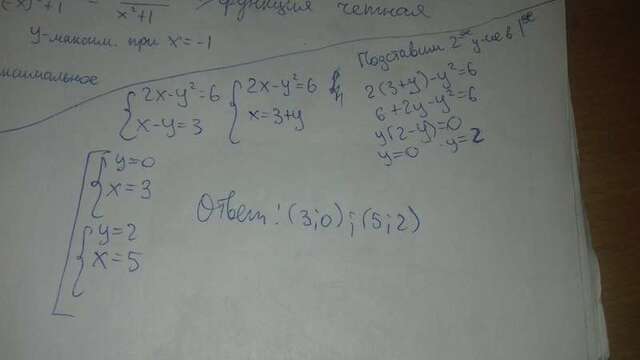 x²+1
функция четная
y-максим. при x=-1
{2x-y²=6 {2x-y²=6
{x-y=3 {x=3+y
Подставим 2ое у-ие в 1ое
2(3+y)-y²=6
6+2y-y²=6
y(2-y)=0
y=0 y=2
[{y=0
{x=3
{y=2
{x=5
Ответ: (3;0);(5;2)